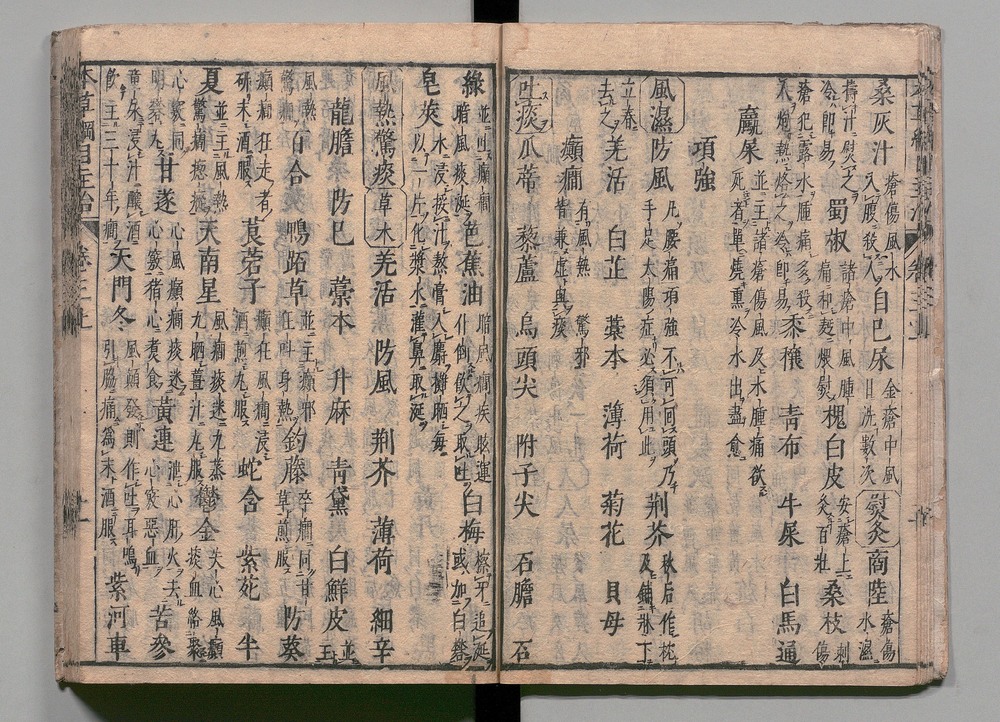 桑灰汁 瘡傷風水入腹殺人 自己尿 金瘡中風日洗數次 熨灸 商陸 瘡傷水濕
搗汁熨之冷即易 蜀椒 諸瘡中風腫痛和麪煨熨 槐白皮 安瘡上灸百壯 桑枝 刺傷
瘡犯露水腫痛多殺人炮熱烙之冷即易 黍穰 青布 牛屎 白馬通
驘屎 並主諸瘡傷風及水腫痛欲死者單燒熏冷水出盡愈
項強
風濕 防風 凡腰痛項強不可回頭乃手足太陽症必須用此 荆芥 秋后作枕及鋪牀下
立春去之 羌活 白芷 藁本 薄荷 菊花 貝母
癲癇 有風熱 驚邪皆兼虛與痰
吐痰 瓜蒂 藜蘆 烏頭尖 附子尖 石膽 石
綠 並吐癲癇暗風痰涎 芭蕉油 暗風癇疾眩運仆倒飲之取吐 白梅 擦牙追涎或加白礬
皂莢 水浸挼汁熬膏入麝攤晒每以一片化漿水灌鼻取涎
風熱驚痰 草木 羌活 防風 荆芥 薄荷 細辛
龍膽 防巳 藁本 升麻 青黛 白鮮皮 並主
風熱驚癇 百合 鴨跖草 並主癲邪狂叫身熱 釣藤 卒癇同甘草煎服 防葵
癲癇狂走者研末酒服 莨菪子 癲狂風癇浸酒煎丸服 蛇含 紫菀 半
夏 並主風熱驚癇瘛瘲 天南星 風癇痰迷九蒸九晒薑汁丸服 鬱金 失心風癲痰血絡聚
心竅同明礬丸 甘遂 心風癲癇痰迷心竅猪心煮食 黃連 泄心肝火去心竅惡血 苦參
童尿浸汁釀酒飲主三十年癇 天門冬 風癲發則作吐耳鳴引脇痛爲末酒服 紫河車
本草綱目主治 卷三上